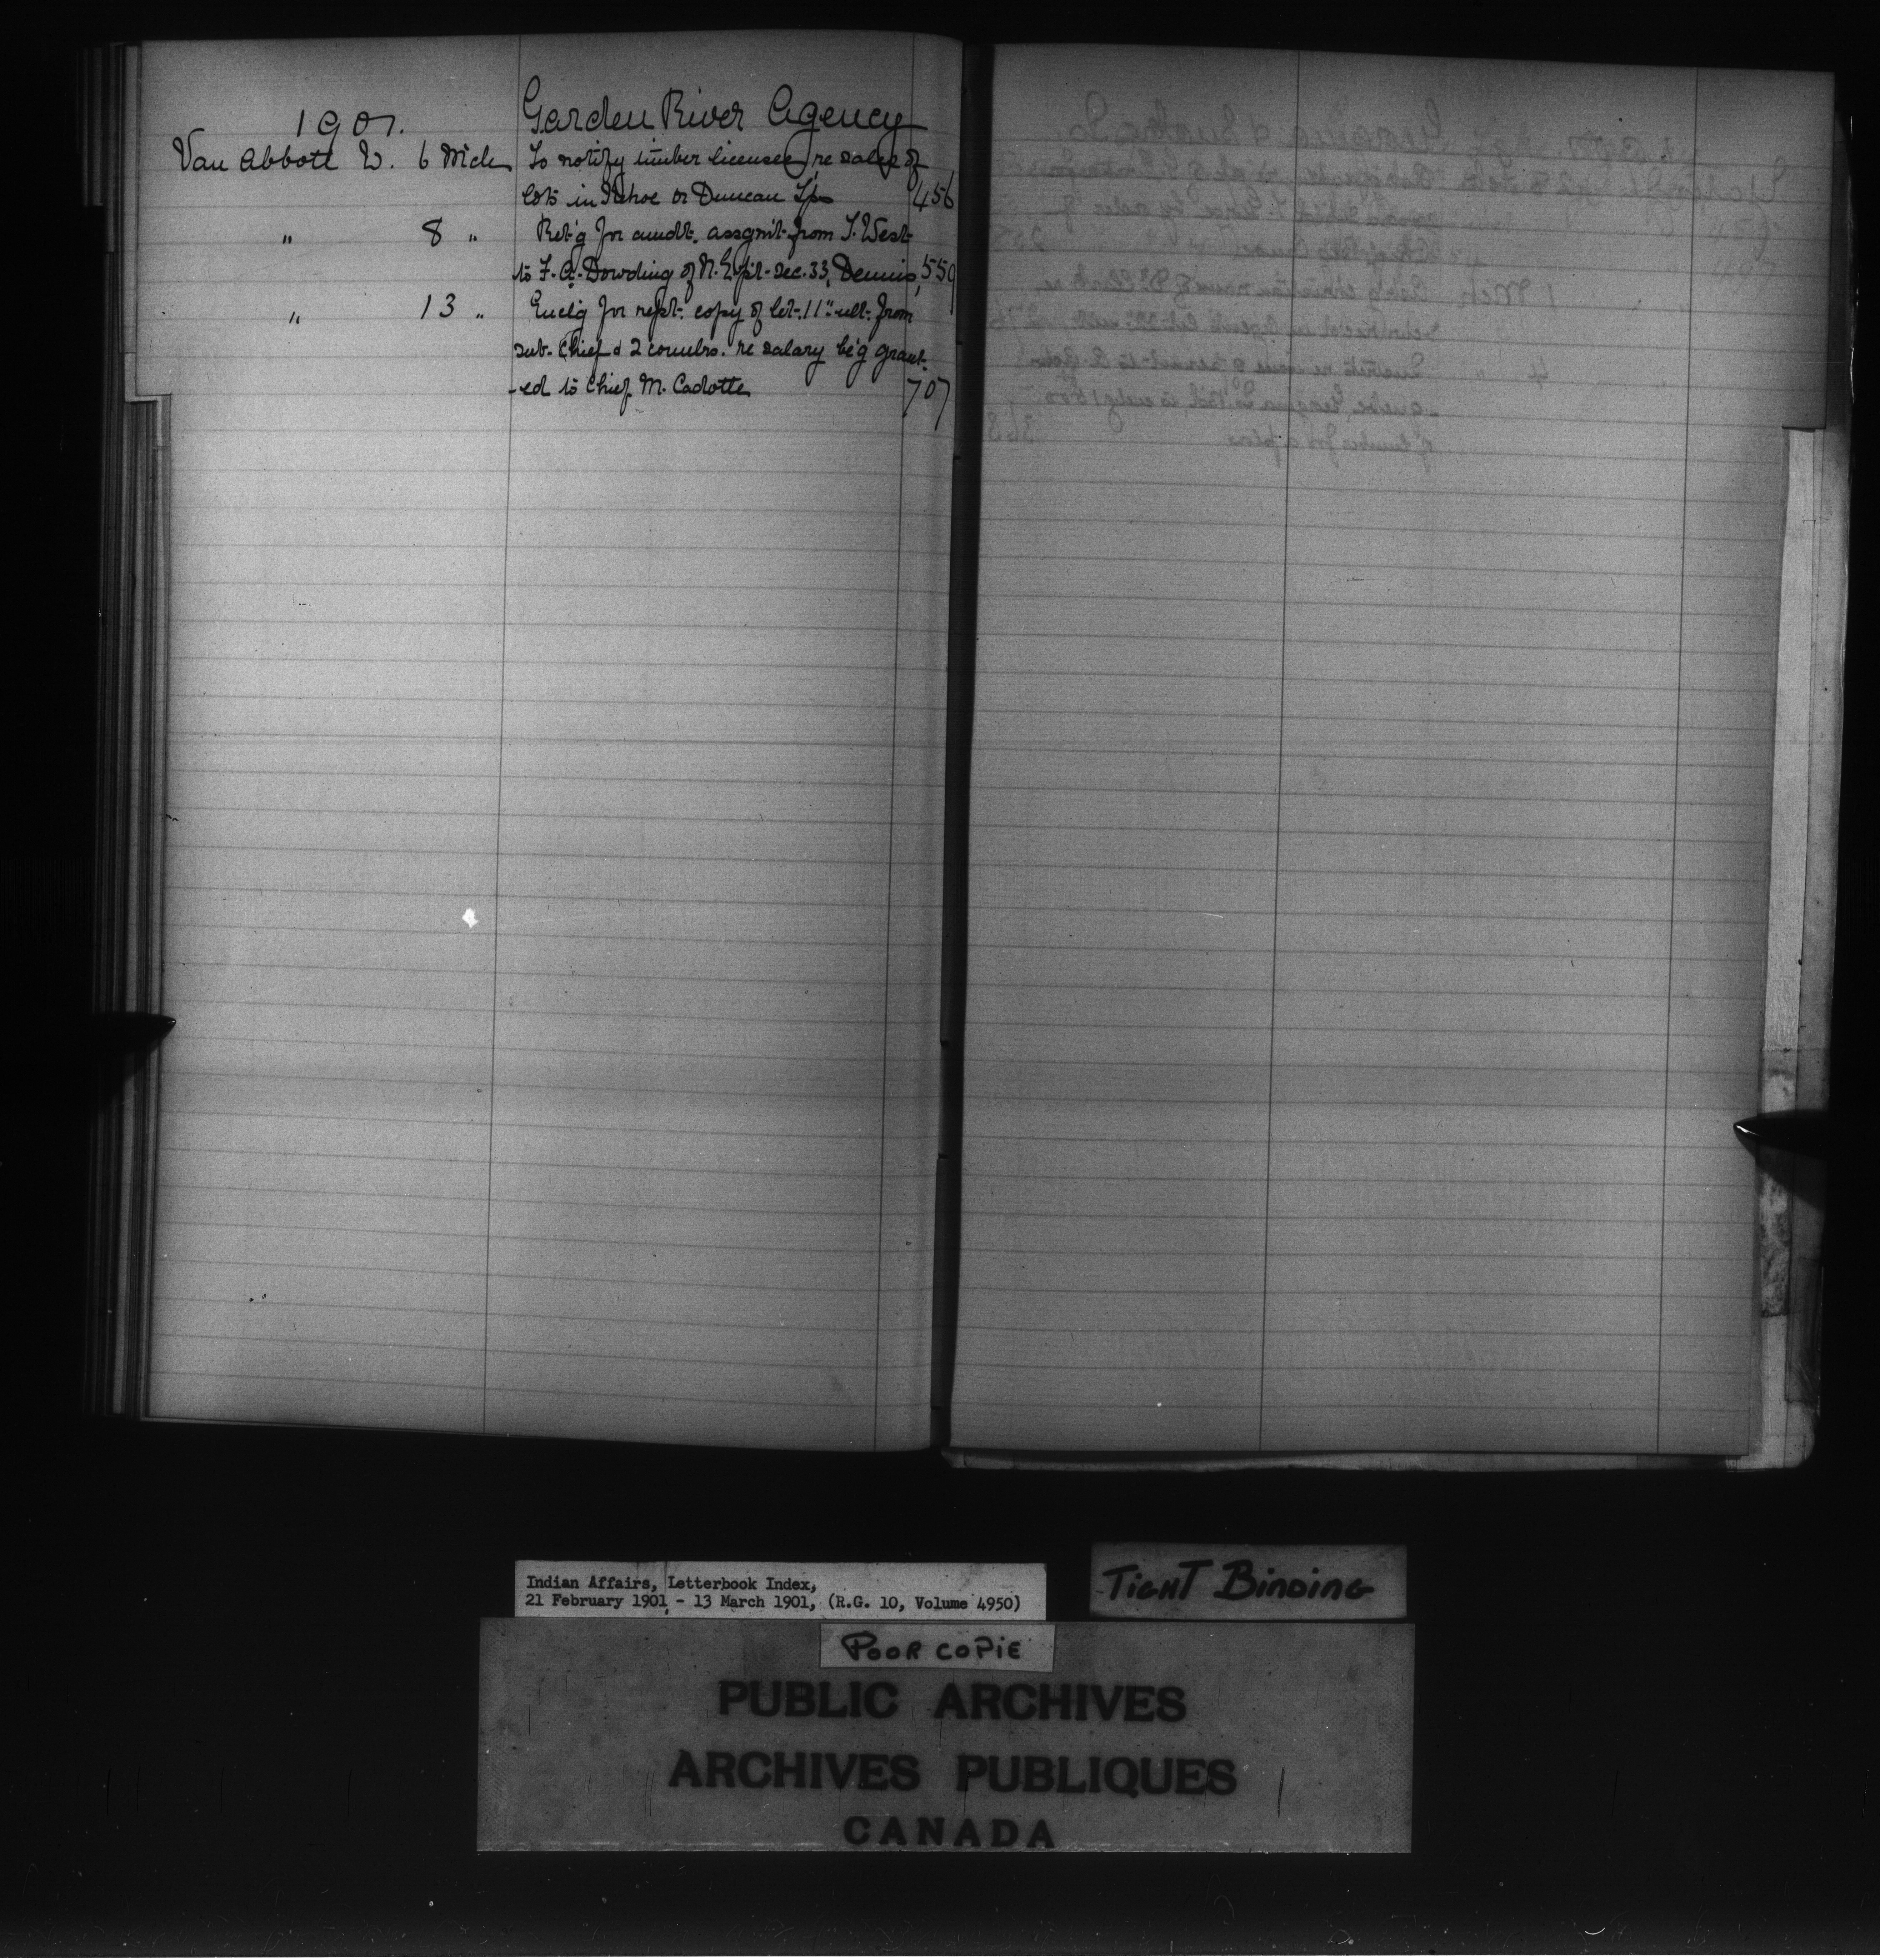 1901. Garden River Agency
Van Abbott W. 6 Mch To notify timber licensee re sales of
lots in Kehoe or Duncan Tps 456
" 8 " Ret'g for amdt. assgmt from T. West
to F. A. Dowding of N.E. 1/4 sec. 33, Dennis, 559
" 13 " Enclg for rept. copy of let. 11" ult. from
sub-Chief & 2 counlrs. re salary be'g grant-
-ed to Chief M. Cadotte 707
Indian Affairs, Letterbook Index,
21 February 1901 - 13 March 1901, (R.G. 10, Volume 4950)
TIGHT BINDING
POOR COPIE
PUBLIC ARCHIVES
ARCHIVES PUBLIQUES
CANADA